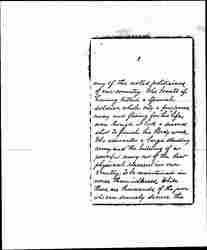 any of the noted politicians
of our country. She boasts of
having killed a Spanish
soldier while only a prisoner
away and fleeing for his life,
even though it took a second
shot to finish his bloody work.
She advocates a large standing
army and the building of a
powerful navy out of the best
physical element in our
Country, to be maintained in
worse than idleness. While
there are thousands of the poor
who are scarcely